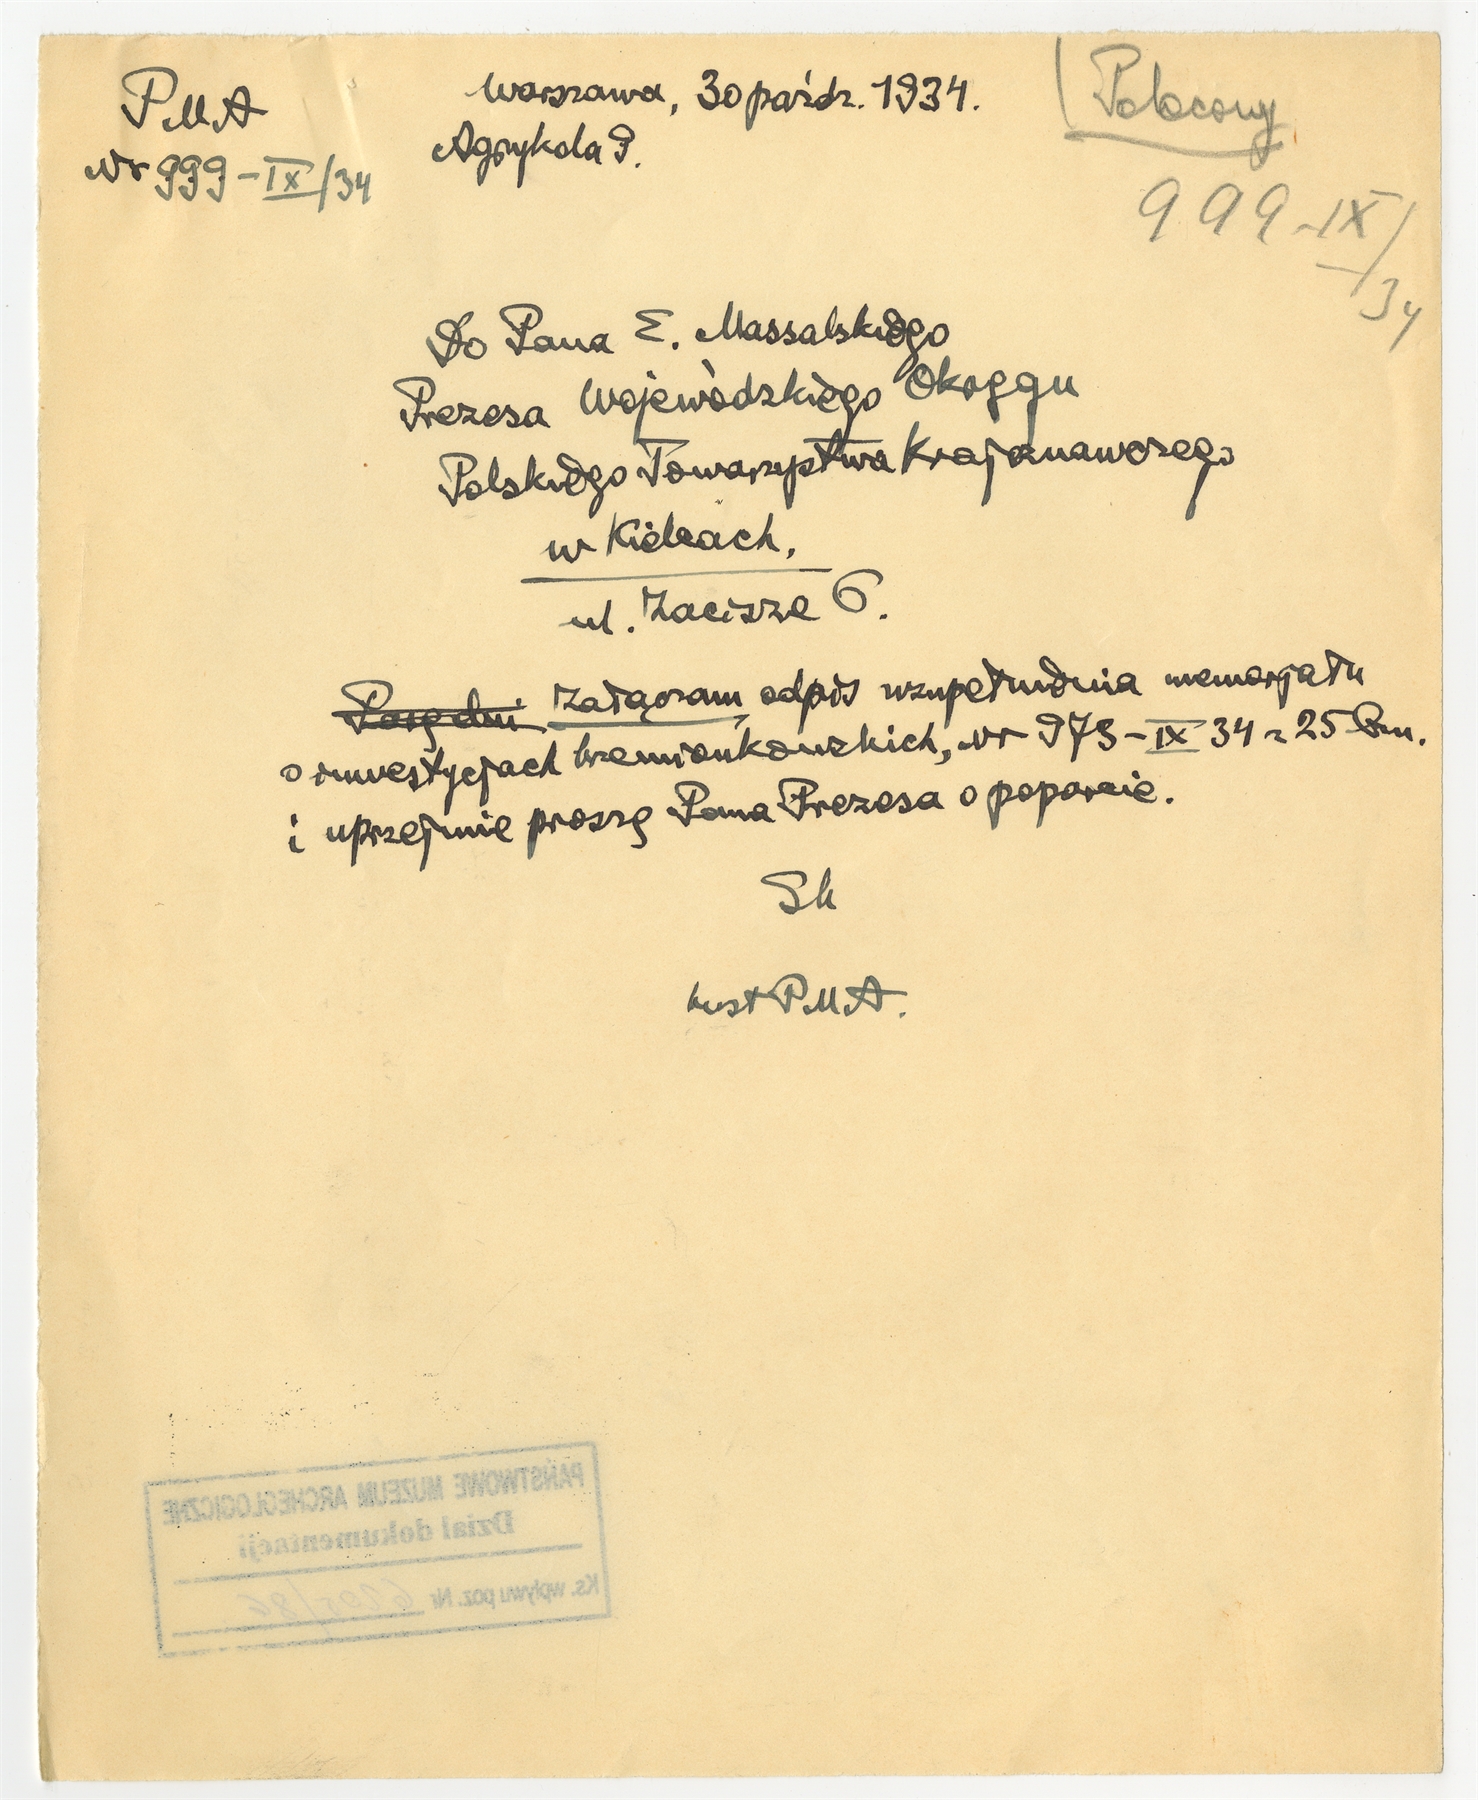 PMA
Nr 999-IX/34
Warszawa, 30 paźdz. 1934.
Agrykola 9.
Polecony
999-IX/34
Do Pana E. Massalskiego
Prezesa Wojewódzkiego Okręgu
Polskiego Towarzystwa Krajoznawczego
w Kielcach,
ul. Zacisze 6.
Załączam odpis uzupełnienia memorjału
o inwestycjach krzemionkowskich, Nr 973-IX 34 z 25 b.m.
i uprzejmie proszę Pana Prezesa o poparcie.
kust PMA.
PAŃSTWOWE MUZEUM ARCHEOLOGICZNE
Dział dokumentacji
Ks. wpływu poz. Nr